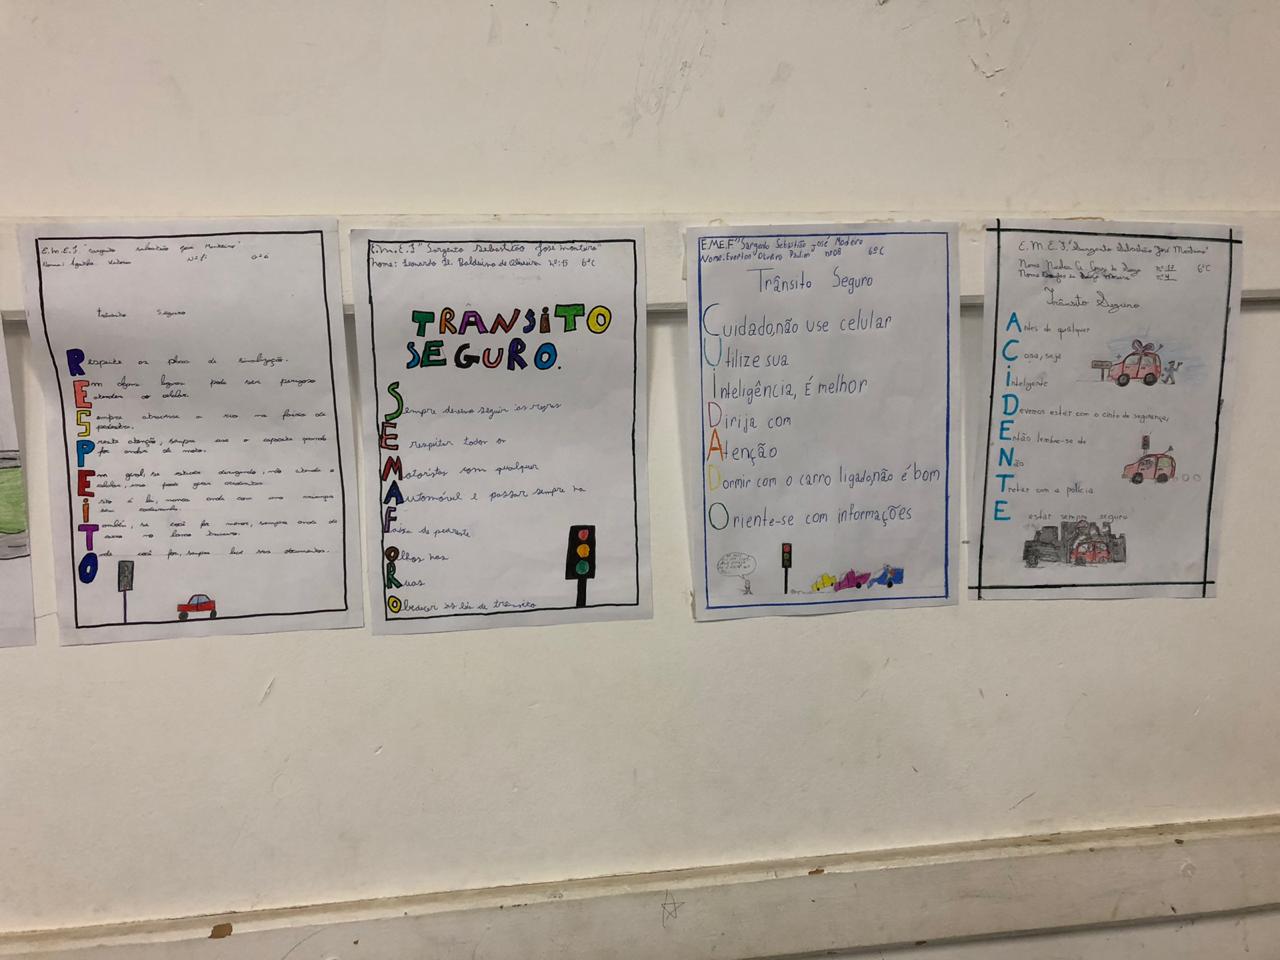 E.M.E.F "Sargento Sebastião José Monteiro"
Nome:
Trânsito Seguro
Respeite as placas de sinalização.
Em alguns lugares pode ser perigoso
atender ao celular.
Sempre atravesse a rua na faixa de
pedestre.
Preste atenção, sempre use o capacete quando
for andar de moto.
Em geral, se estiver dirigindo, não atenda o
celular, isso pode gerar acidentes.
Isto é lei, nunca ande com uma criança
sem cadeirinha.
Também, se você for menor, sempre ande de
carro no banco traseiro.
Onde você for, sempre leve seus documentos.
E.M.E.F "Sargento Sebastião José Monteiro"
Nome: Leonardo H. Balduino de Oliveira Nº:15 6ºC
TRÂNSITO
SEGURO.
Sempre devemos seguir as regras
E respeitar todos os
Motoristas com qualquer
Automóvel e passar sempre na
Faixa de pedestre
Olhos nas
Ruas
Obedecer às leis de trânsito
E.M.E.F "Sargento Sebastião José Madeiro
Nome. Everton Oliveira Paulim Nº08 6ºC
Trânsito Seguro
Cuidado,não use celular
Utilize sua
Inteligência, É melhor
Dirija com
Atenção
Dormir com o carro ligado,não é bom
Oriente-se com informações
E.M.E.F. "Sargento Sebastião José Monteiro"
Nome nº 17 6ºC
Nome nº 4
Trânsito Seguro
Antes de qualquer
Coisa, seja
Inteligente
Devemos estar com o cinto de segurança,
Então lembre-se de
Não
Tretar com a polícia
E estar sempre seguro